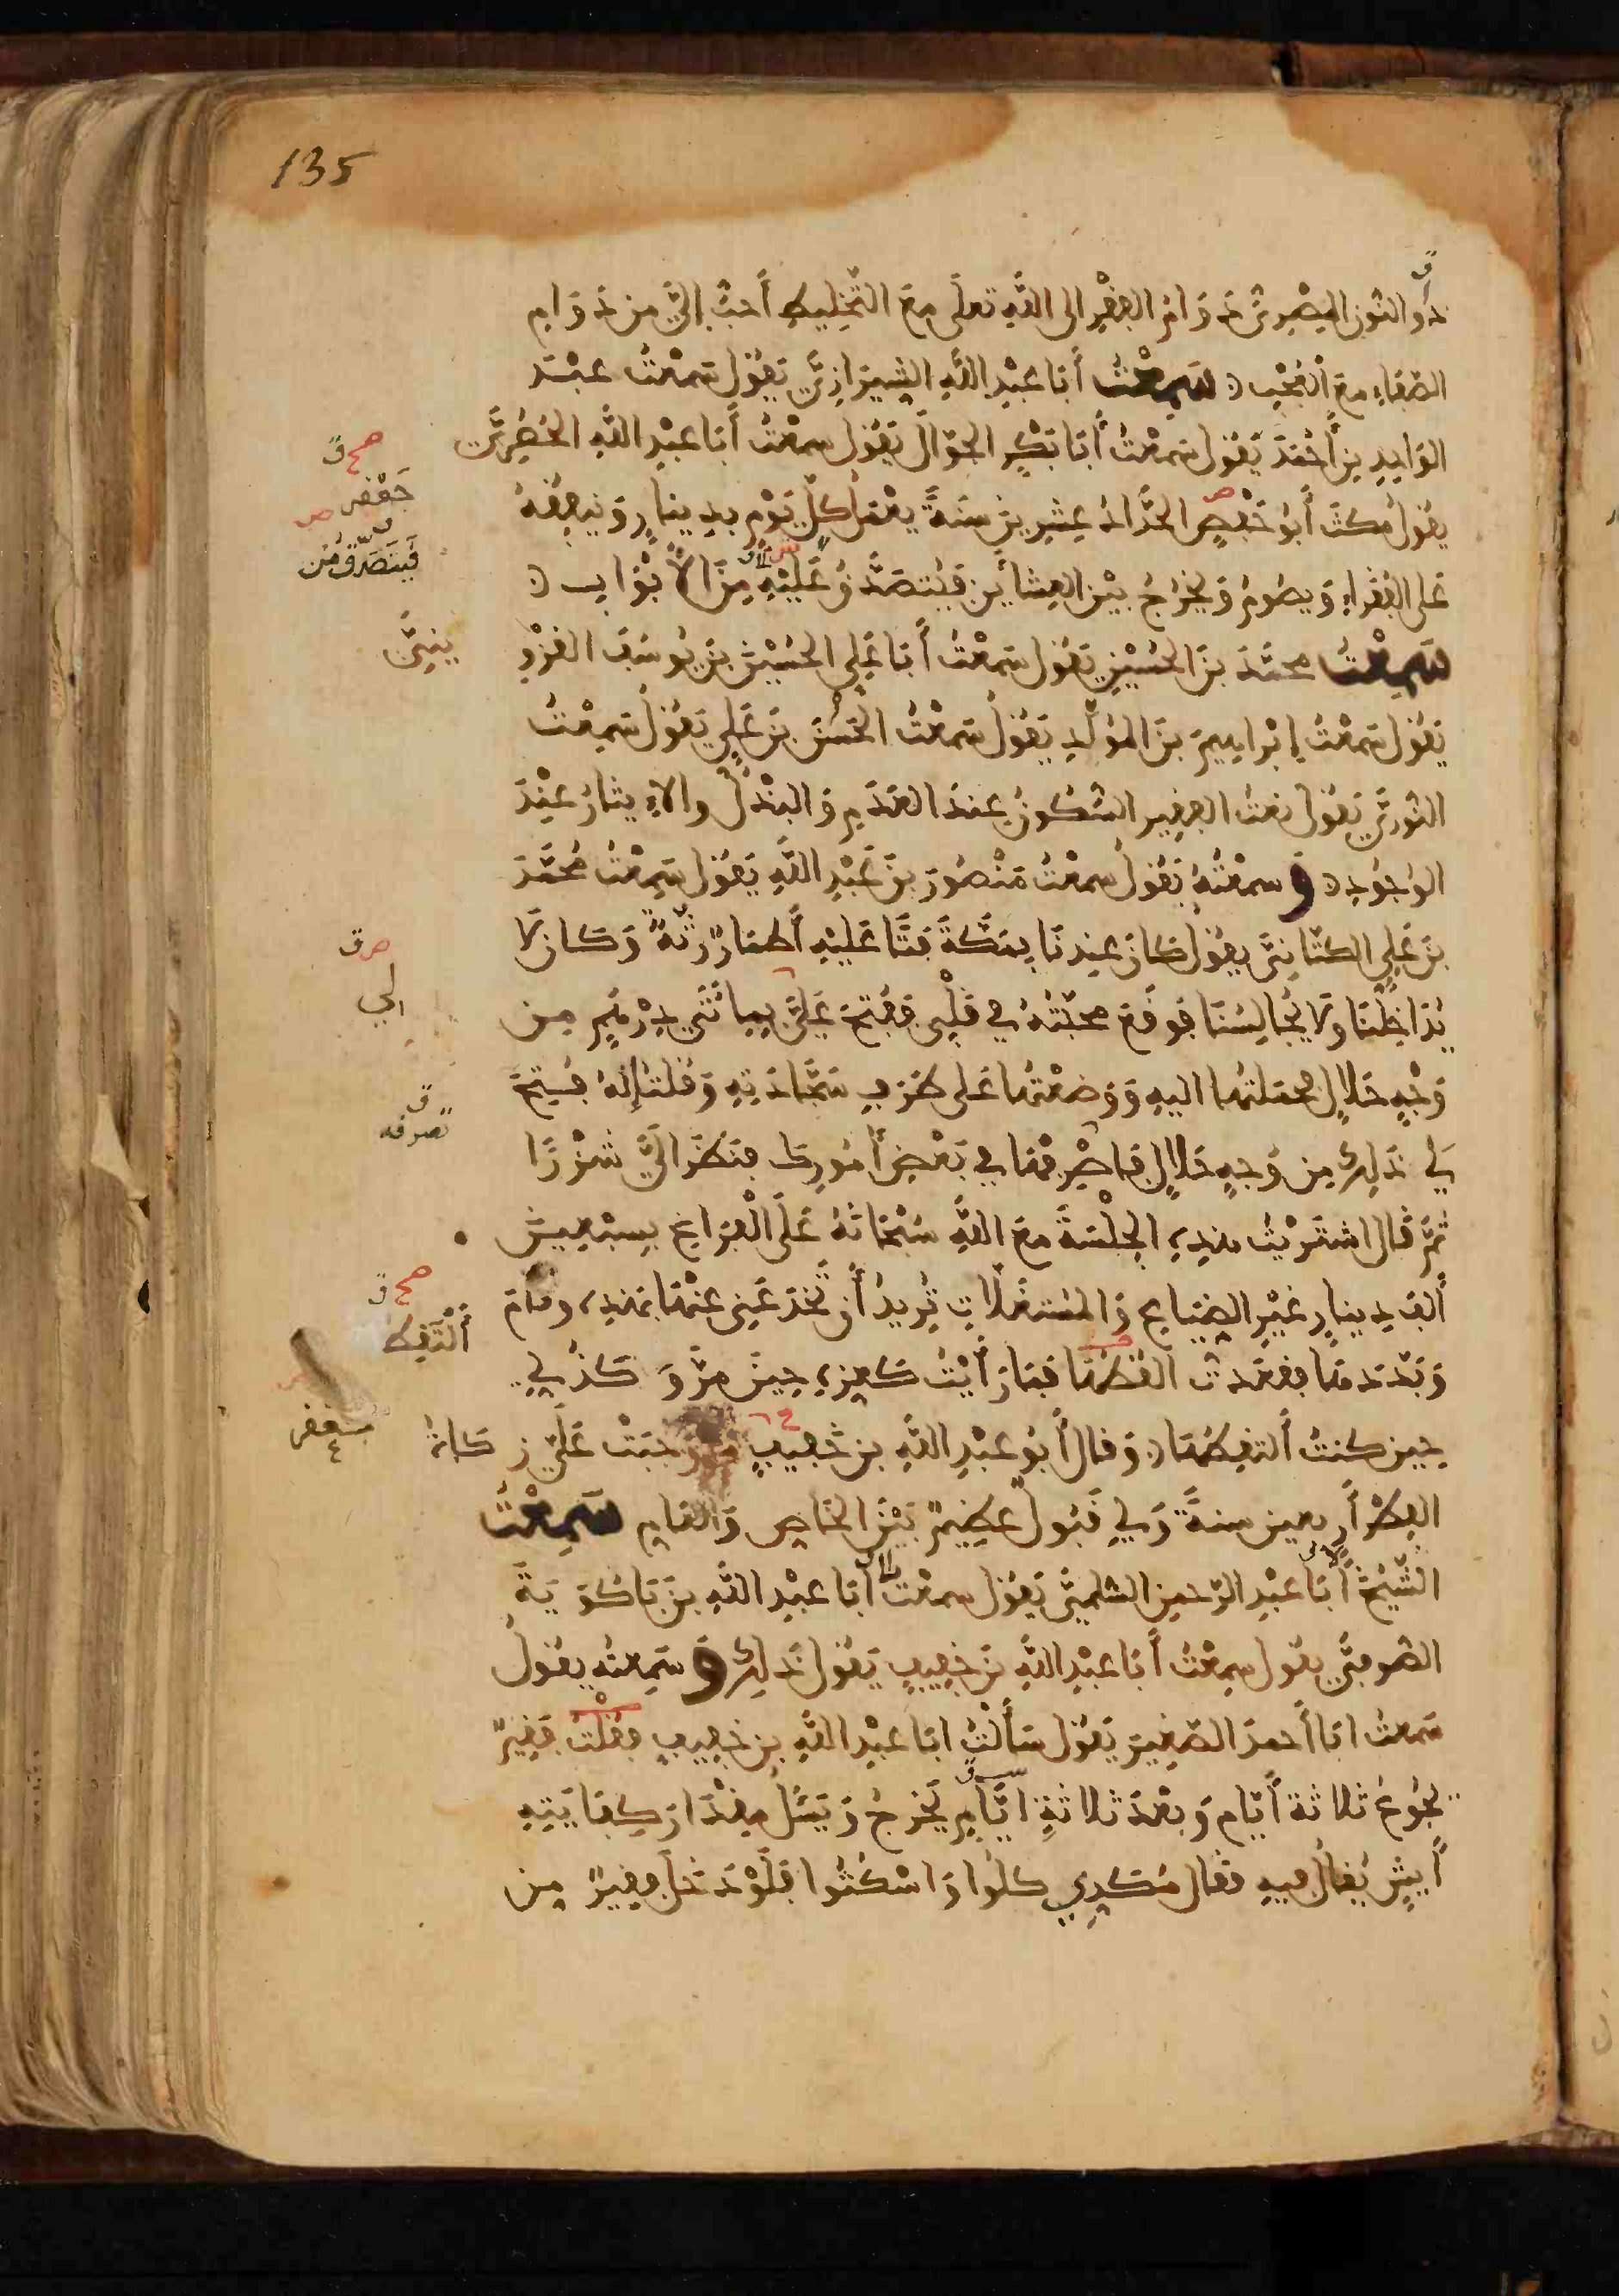 135
ذو النون المصري دوام الفقر الى الله تعلى مع التخليط أحب إلي من دوام
الصفاء مع العجب سمعت أبا عبد الله الشيرازي يقول سمعت عبد
الواحد بن أحمد يقول سمعت أبا بكر الجوال يقول سمعت أبا عبد الله الحصري
يقول مكث أبو حفص الحداد عشرين سنة يعمل كل يوم بدينار وينفقه
على الفقراء ويصوم ويخرج بين العشائين فيتصدق عليه من الأبواب
سمعت محمد بن الحسين يقول سمعت أبا علي الحسين بن يوسف القزو
يقول سمعت إبراهيم بن المولد يقول سمعت الحسن بن علي يقول سمعت
النوري يقول نعت الفقير السكون عند العدم والبذل والإيثار عند
الوجود وسمعته يقول سمعت منصور بن عبد الله يقول سمعت محمد
بن علي الكتاني يقول كان عندنا بمكة فتا عليه أطمار رثة وكان لا
يداخلنا ولا يجالسنا فوقع محبته في قلبي ففتح علي بمائتي درهم من
وجه حلال فحملتها اليه ووضعتها على طرف سجادته وقلت إنه فتح
لي ذلك من وجه حلال فاصرفها في بعض أمورك فنظر الي شزرا
ثم قال اشتريت هذه الجلسة مع الله سبحانه على الفراغ بسبعين
ألف دينار غير الضياع والمستغلات تريد أن تخدعني عنها بهذه وقام
وبددها فقعدت القطها فما رأيت كعزه حين مر وكذلي
حين كنت ألتقطها وقال أبو عبد الله بن خفيف ما وجبت علي زكاة
الفطر أربعين سنة ولي قبول عظيم بين الخاص والعام سمعت
الشيخ أبا عبد الرحمن السلمي يقول سمعت أبا عبد الله بن باكوية
الصوفي يقول سمعت أبا عبد الله بن خفيف يقول ذلك وسمعته يقول
سمعت ابا أحمد الصغير يقول سألت ابا عبد الله بن خفيف فقلت فقير
يجوع ثلاثة أيام وبعد ثلاثة ايام يخرج ويسئل مقدار كفايته
أيش يقال فيه فقال مكدي كلوا واسكتوا فلو دخل فقير من
صح ق
جعفر
فيتصدق من
يني
الي
تصرفه
صح ق
ألتقط